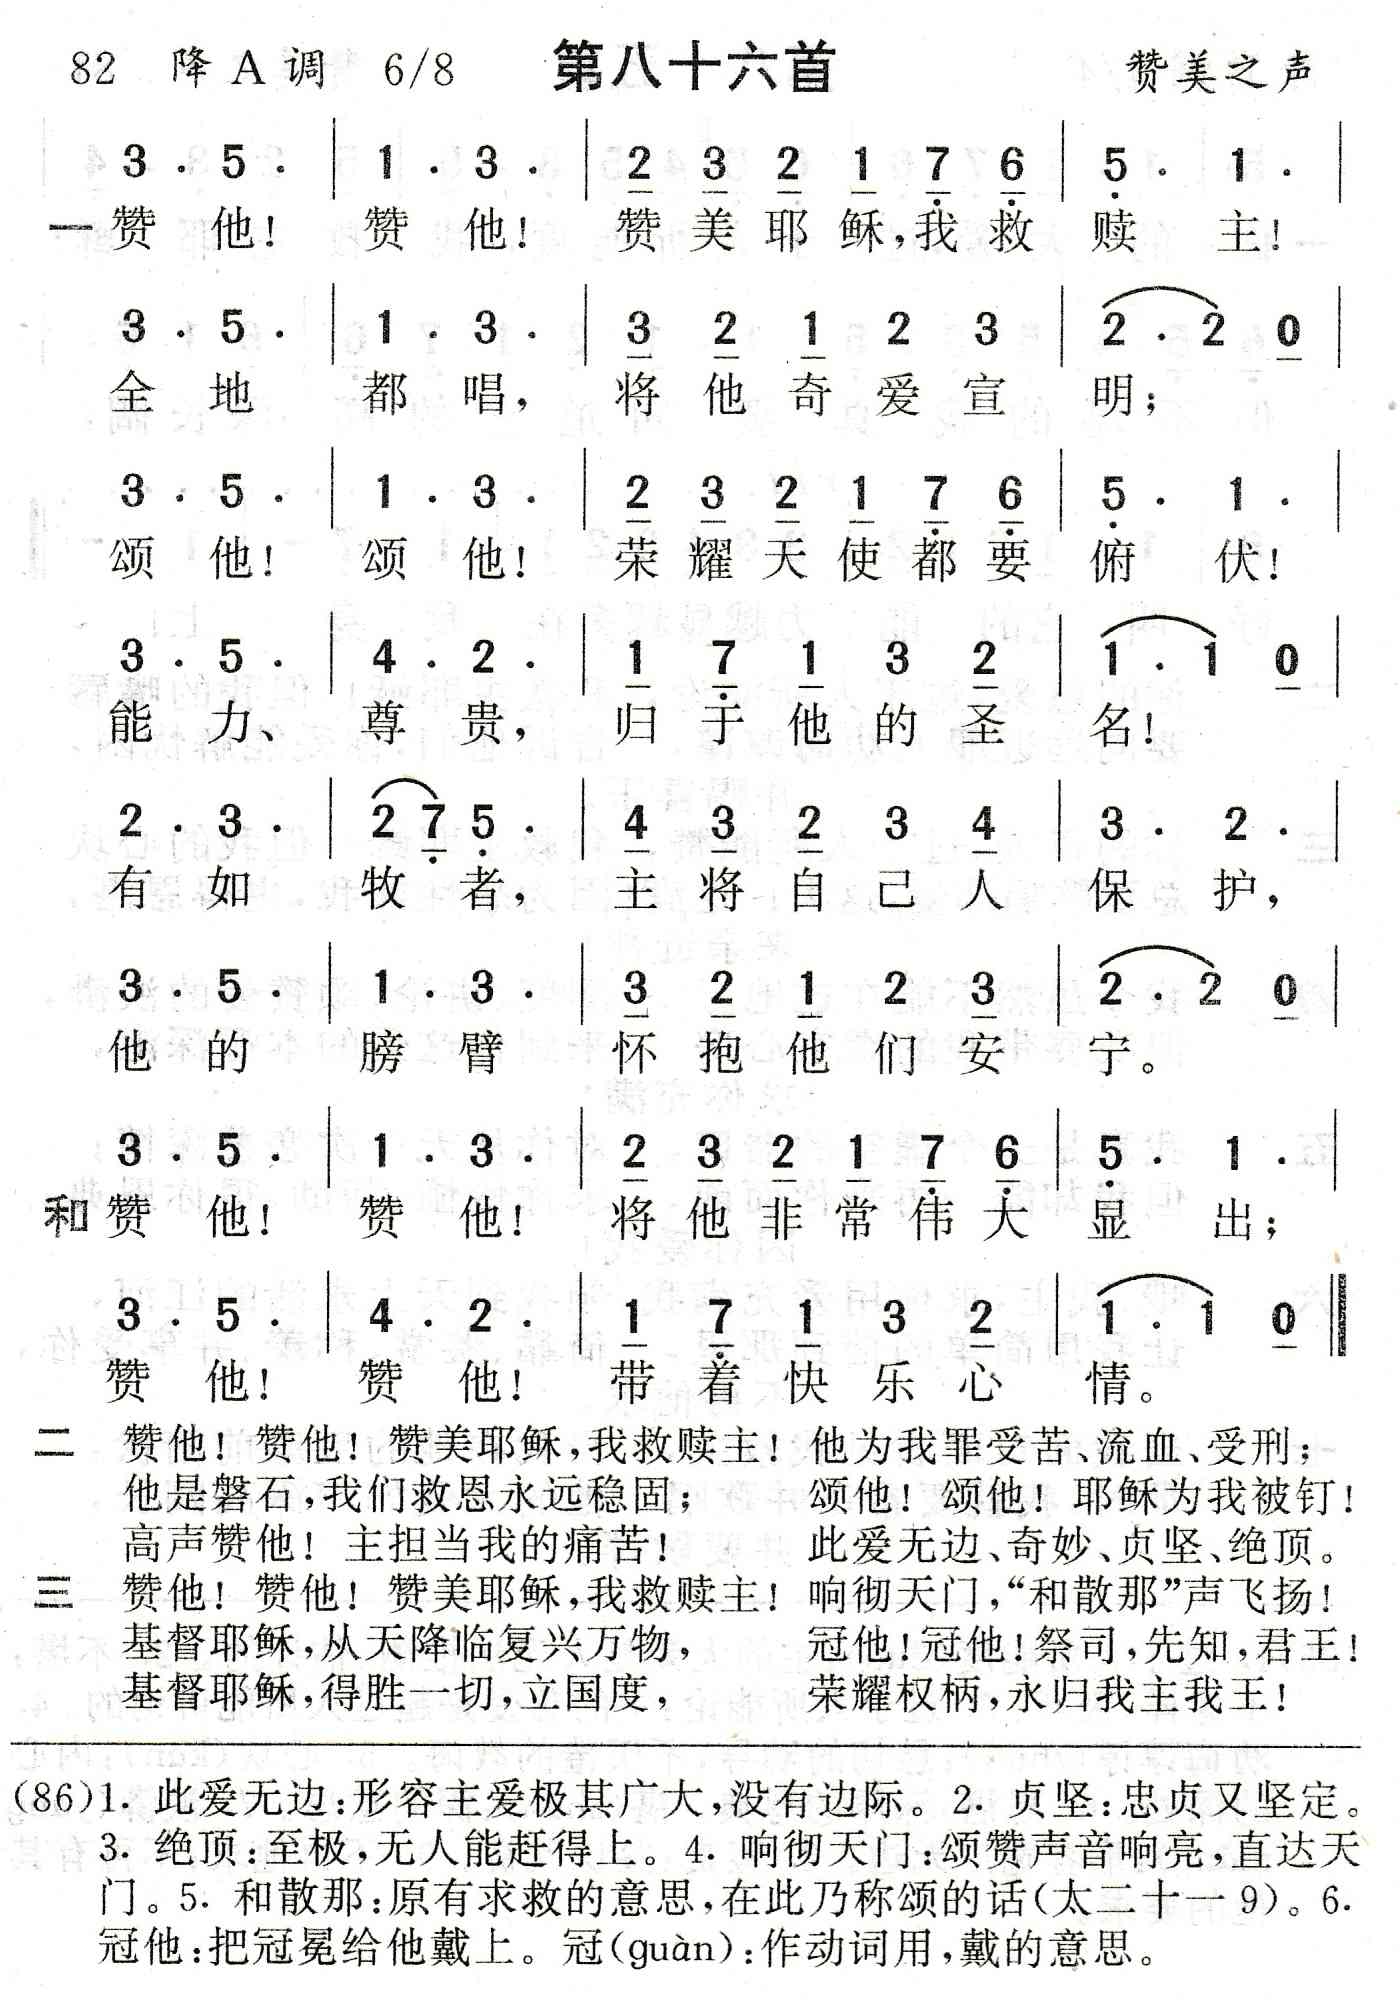 82 降A调 6/8 第八十六首 赞美之声
3 · 5 · | 1 · 3 · | 2 3 2 1 7 6 | 5 · 1 · |
一 赞他！赞他！赞美耶稣，我救赎主！
3 · 5 · | 1 · 3 · | 3 2 1 2 3 | 2 · 2 0 |
全地都唱，将他奇爱宣明；
3 · 5 · | 1 · 3 · | 2 3 2 1 7 6 | 5 · 1 · |
颂他！颂他！荣耀天使都要俯伏！
3 · 5 · | 4 · 2 · | 1 7 1 3 2 | 1 · 1 0 |
能力、尊贵，归于他的圣名！
2 · 3 · | 2 7 5 · | 4 3 2 3 4 | 3 · 2 · |
有如牧者，主将自己人保护，
3 · 5 · | 1 · 3 · | 3 2 1 2 3 | 2 · 2 0 |
他的膀臂怀抱他们安宁。
3 · 5 · | 1 · 3 · | 2 3 2 1 7 6 | 5 · 1 · |
和 赞他！赞他！将他非常伟大显出；
3 · 5 · | 4 · 2 · | 1 7 1 3 2 | 1 · 1 0 ‖
赞他！赞他！带着快乐心情。
二 赞他！赞他！赞美耶稣，我救赎主！他为我罪受苦、流血、受刑；
他是磐石，我们救恩永远稳固； 颂他！颂他！耶稣为我被钉！
高声赞他！主担当我的痛苦！ 此爱无边、奇妙、贞坚、绝顶。
三 赞他！赞他！赞美耶稣，我救赎主！响彻天门，“和散那”声飞扬！
基督耶稣，从天降临复兴万物， 冠他！冠他！祭司，先知，君王！
基督耶稣，得胜一切，立国度， 荣耀权柄，永归我主我王！
(86)1. 此爱无边：形容主爱极其广大，没有边际。2. 贞坚：忠贞又坚定。
3. 绝顶：至极，无人能赶得上。4. 响彻天门：颂赞声音响亮，直达天
门。5. 和散那：原有求救的意思，在此乃称颂的话(太二十一9)。6.
冠他：把冠冕给他戴上。冠(guàn)：作动词用，戴的意思。